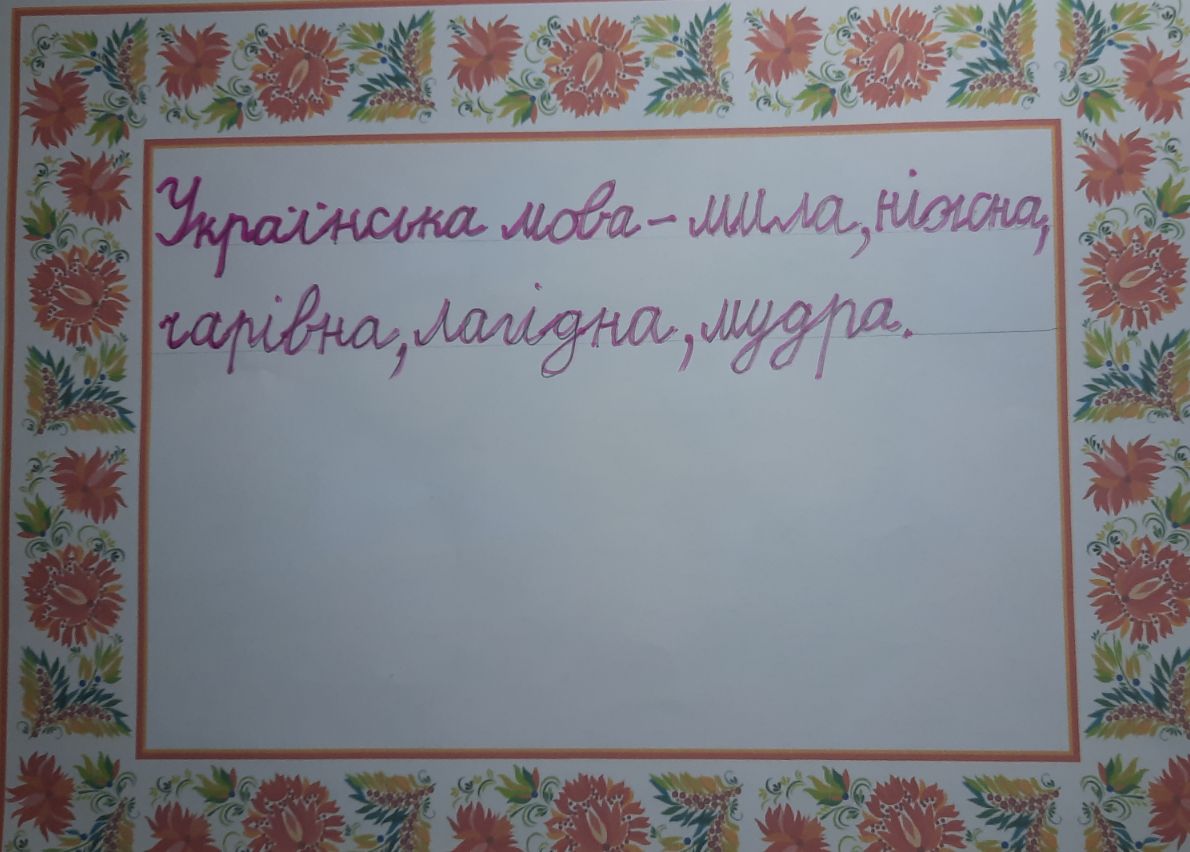 Українська мова - мила, ніжна,
чарівна, лагідна, мудра.